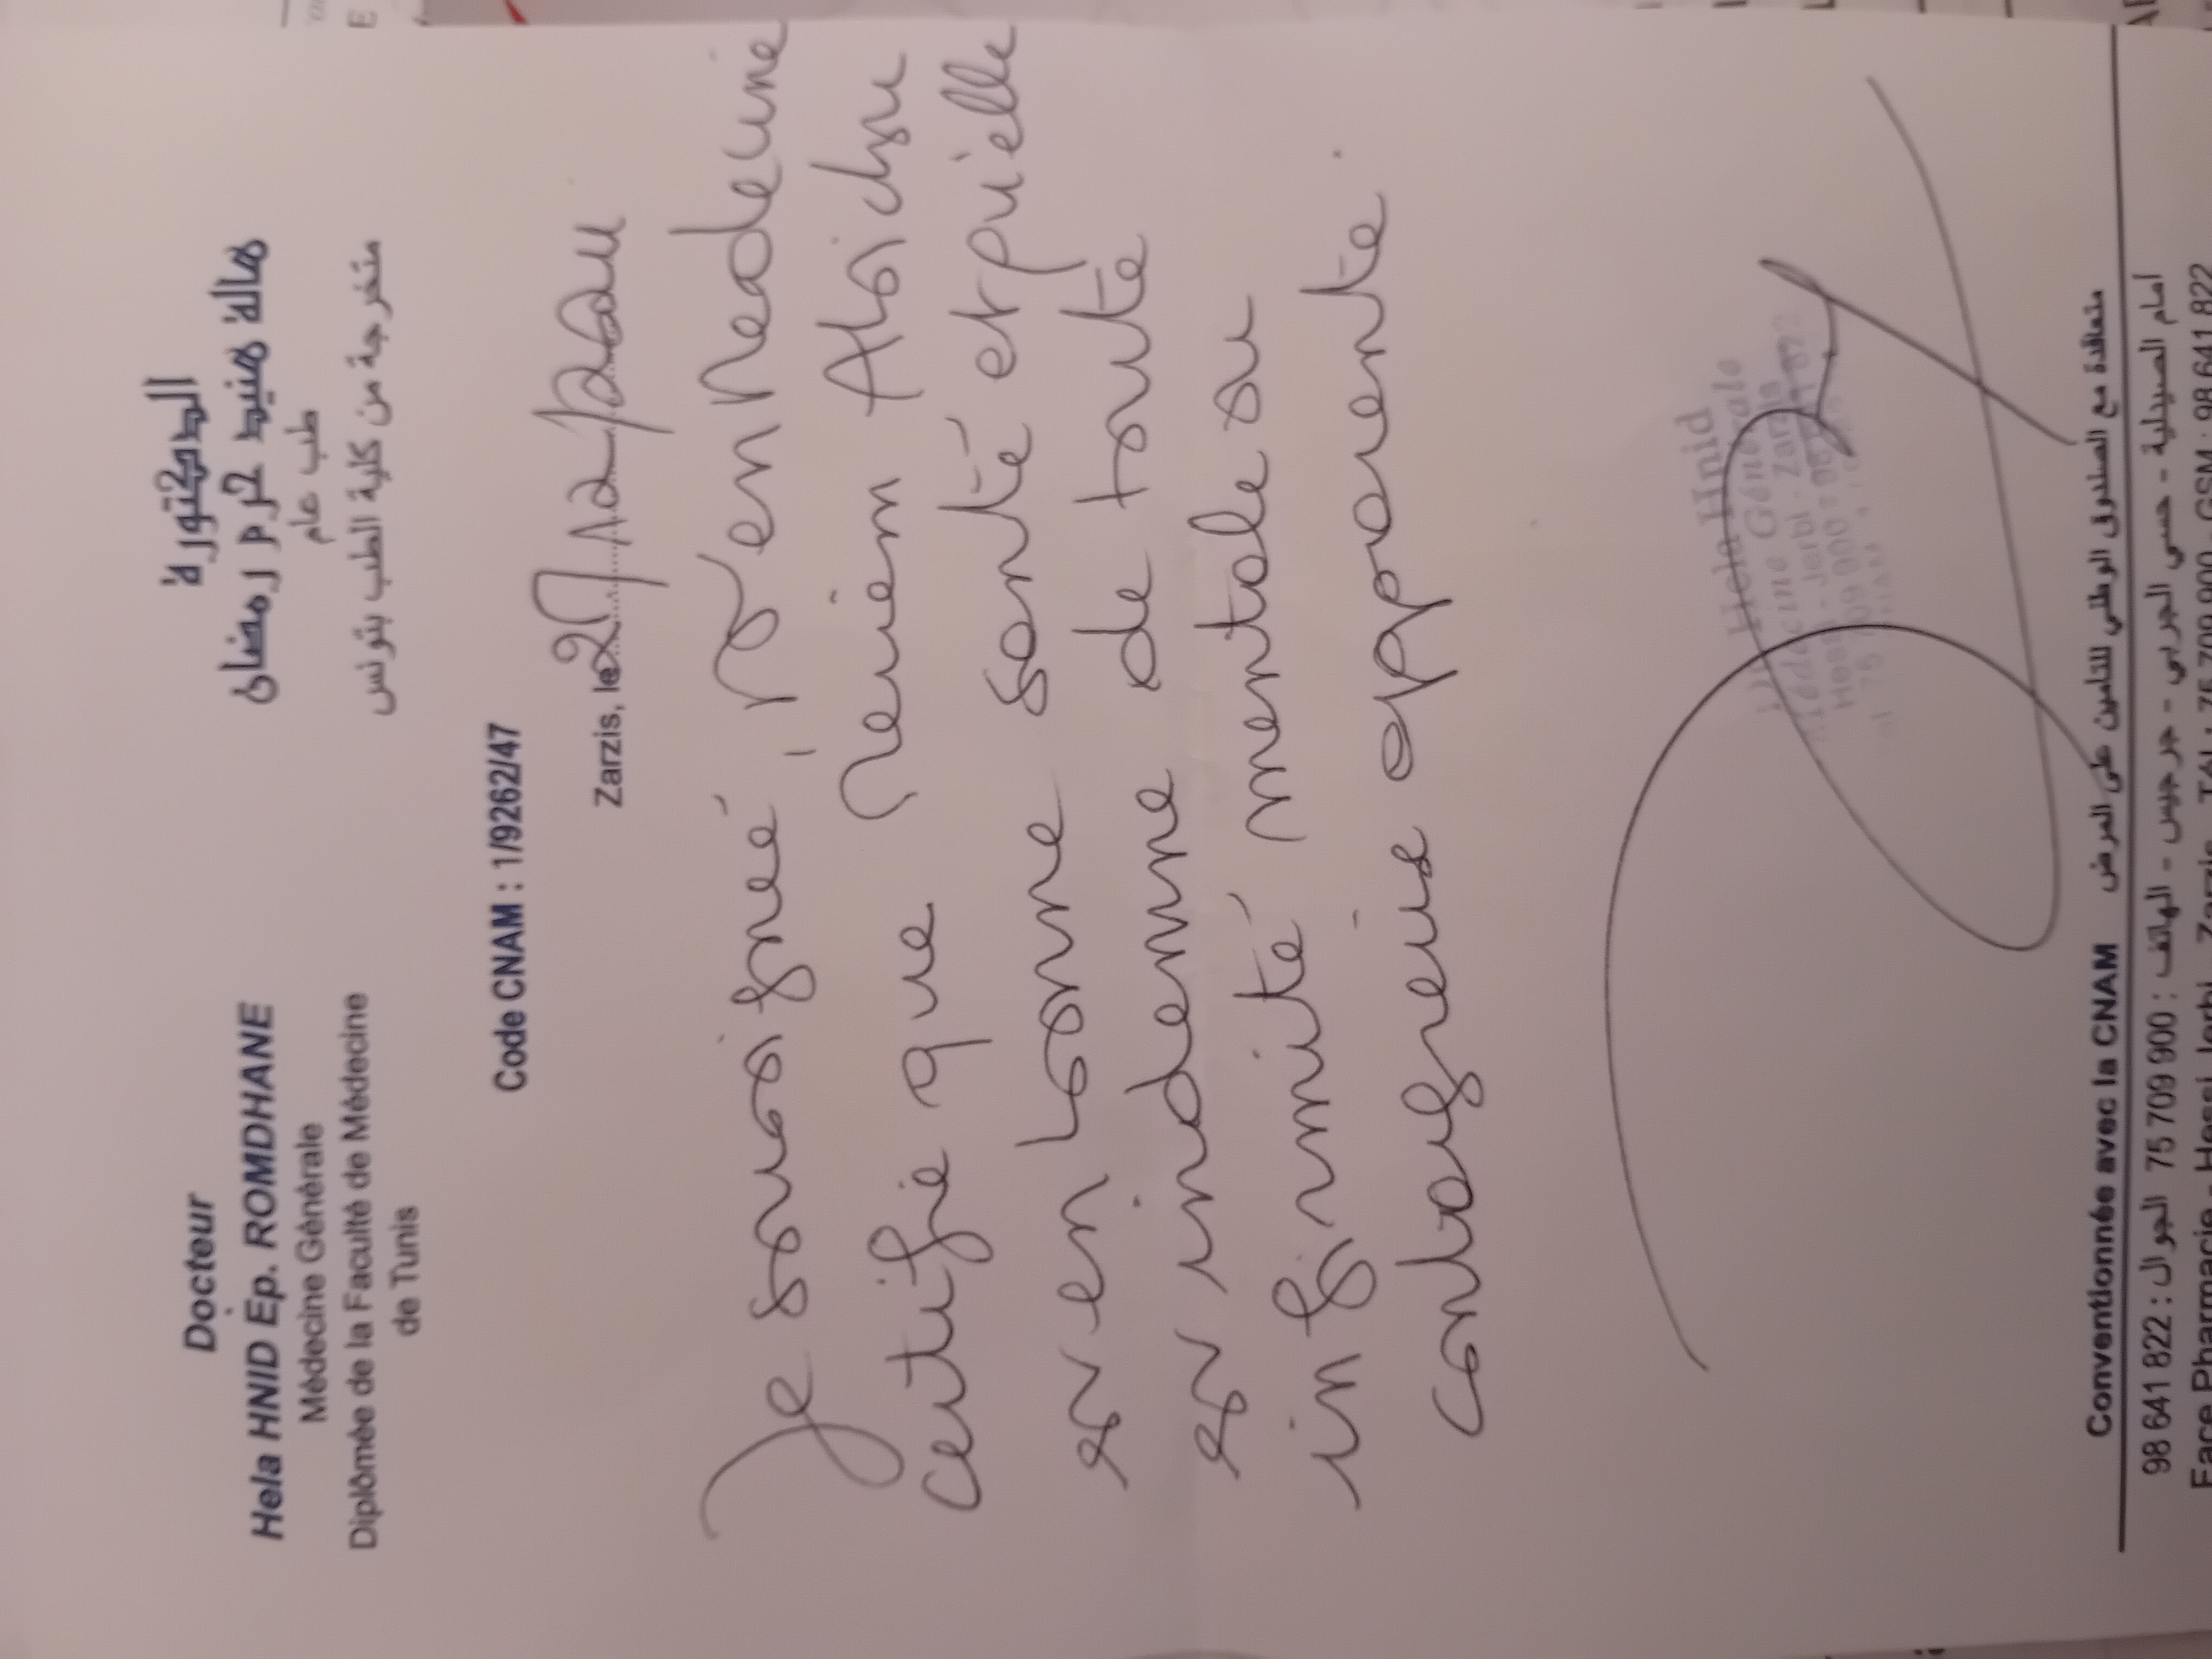 Docteur
Hela HNID Ep. ROMDHANE
Médecine Générale
Diplômée de la Faculté de Médecine
de Tunis
الدكتورة
هالة هنيد حرم رمضان
طب عام
متخرجة من كلية الطب بتونس
Code CNAM : 1/9262/47
Zarzis, le
Je soussigné, Dr en Medecine
certifie que Meriem
est en bonne santé et qu'elle
est indemne de toute
infirmité mentale ou
contagieuse apparente.
Dr Hela Hnid
Médecine Générale
Hessi - Jerbi - Zarzis
Conventionnée avec la CNAM متعاقدة مع الصندوق الوطني للتأمين على المرض
أمام الصيدلية - حسي الجربي - جرجيس - الهاتف : 75 709 900 الجوال : 98 641 822
Face Pharmacie - Hessi Jerbi - Zarzis - Tél : 75 709 900 - GSM : 98 641 822